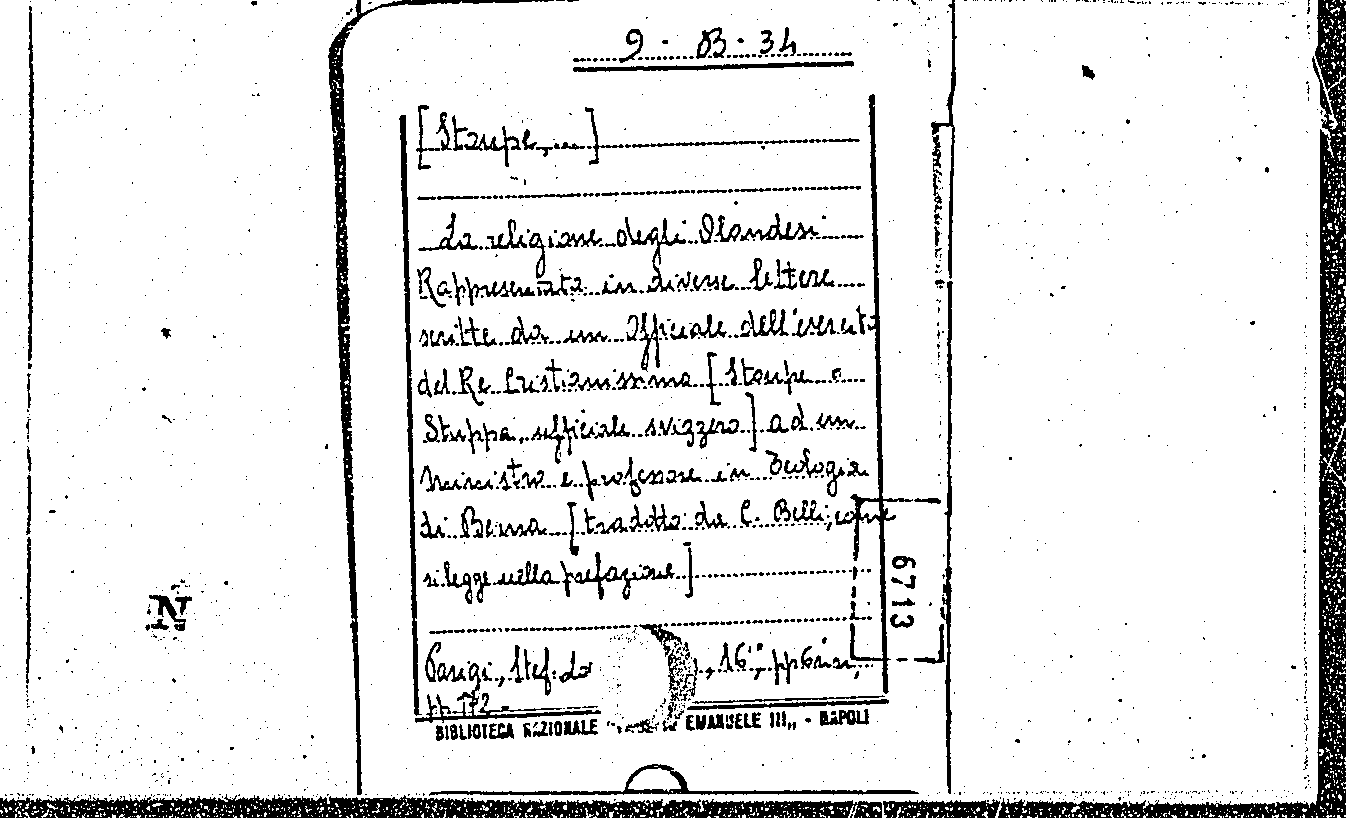 9 · B · 34
[Stoupe, ...]
La religione degli Olandesi
Rappresentata in diverse lettere
scritte da un Officiale dell'esercito
del Re Cristianissimo [Stoupe o
Stuppa, ufficiale svizzero] ad un
Ministro e professore in Teologia
di Berna [tradotto da C. Belli, come
si legge nella prefazione]
Parigi, Stef. , 16°, pp
pp. 172 -
BIBLIOTECA NAZIONALE EMANUELE III,, - NAPOLI
6713
N